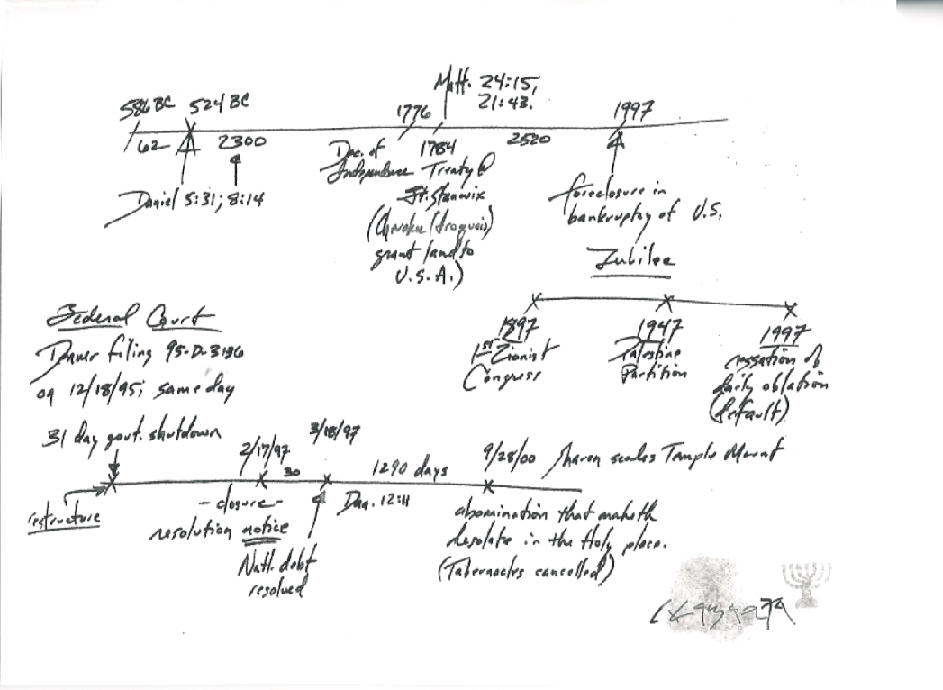 586 BC 524 BC
62 2300
Daniel 5:31; 8:14
1776
Dec. of
Independence
Matt. 24:15,
21:43.
1784
Treaty @
Ft. Stanwix
(Cherokee/Iroquois)
grant land to
U.S.A.)
2520
1997
foreclosure in
bankruptcy of U.S.
Jubilee
1897
1st Zionist
Congress
1947
Palestine
Partition
1997
cessation of
daily oblation
(default)
Federal Court
filing 95-D-3196
on 12/18/95; same day
31 day govt. shutdown
restructure
2/17/97
30
- closure -
resolution notice
3/18/97
Natl. debt
resolved
1290 days
Dan. 12:11
9/28/00 Sharon scales Temple Mount
abomination that maketh
desolate in the Holy place.
(Tabernacles cancelled)